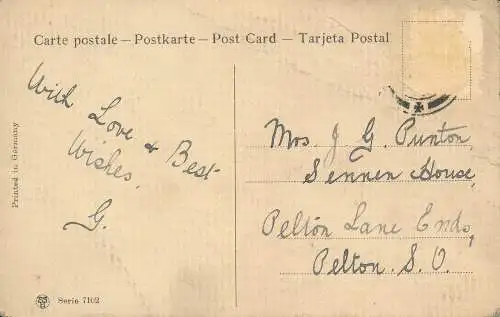 Carte postale — Postkarte — Post Card — Tarjeta Postal
With Love & Best
Wishes,
G.
Mrs. J. G. Punton,
Sennen House,
Pelton Lane Ends,
Pelton. S. O.
Printed in Germany
Serie 7102